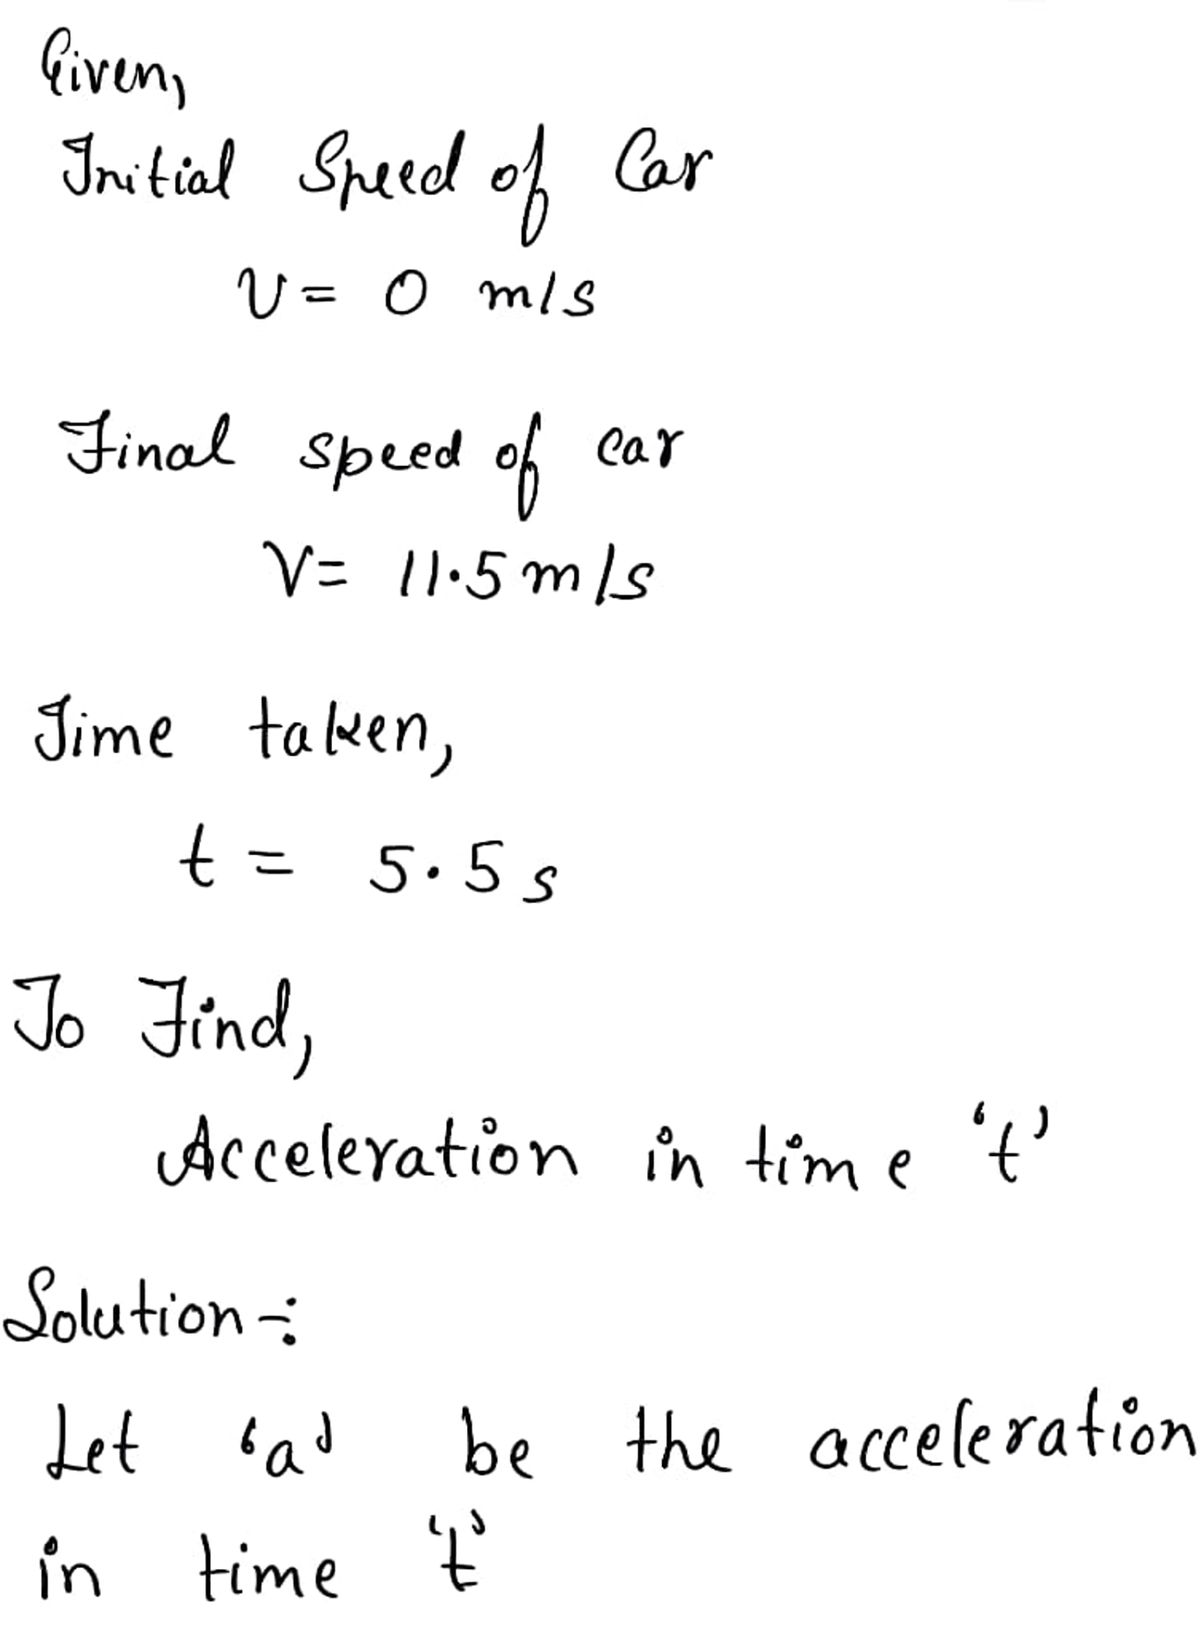 Given,
Initial Speed of Car
U = 0 m/s
Final speed of car
V = 11.5 m/s
Time taken,
t = 5.5 s
To Find,
Acceleration in time 't'
Solution -:
Let 'a' be the acceleration
in time 't'